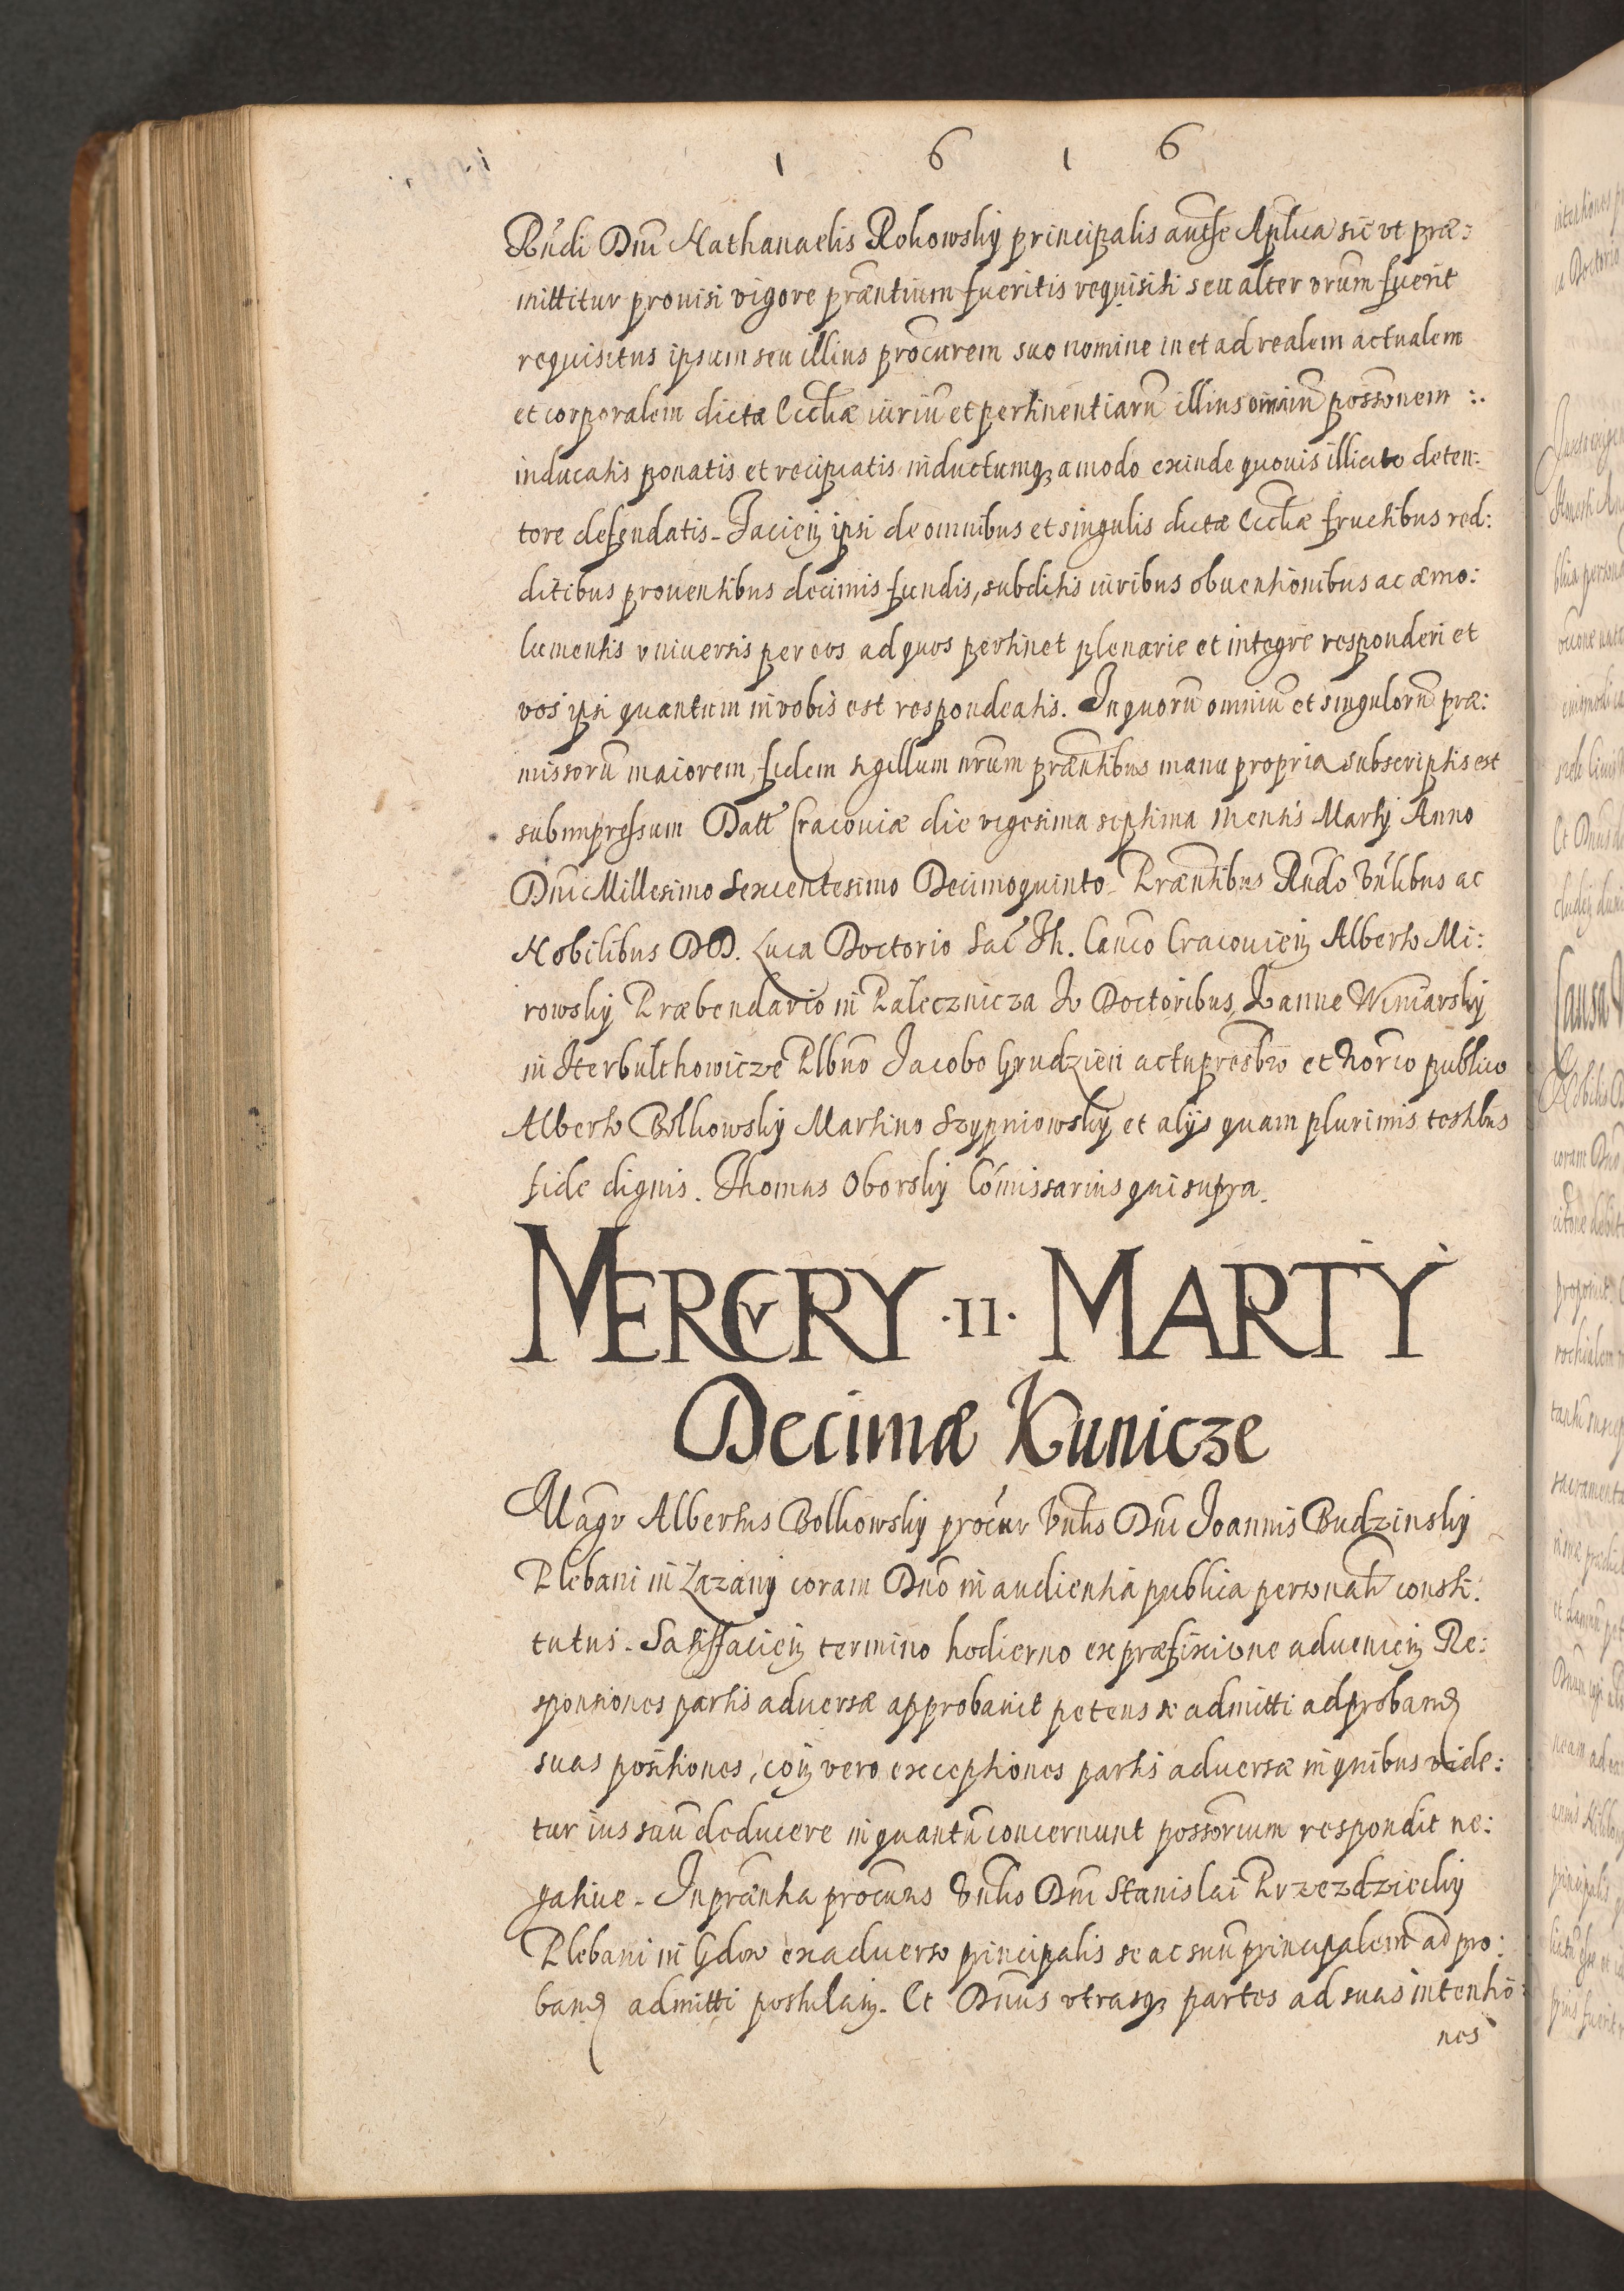 1 6 1 6
Rndi Dni Nathanaelis Rokowskij principalis autħe Aplica sic ut præ:
mittitur prouisi vigore præntium fueritis requisiti seu alter vrum fuerit
requisitus ipsum seu illius procurem suo nomine in et ad realem actualem
et corporalem dictæ Ecclæ iuriũ et pertinentiarũ illius omniũ possonem :.
inducatis ponatis et recipiatis inductumq3 amodo exinde quouis illicito deten:
tore defendatis. Facien ipsi de omnibus et singulis dictæ Ecclæ fructibus red:
ditibus prouentibus decimis fundis, subditis iuribus obuentionibus ac æmo:
lumentis vniuersis per eos ad quos pertinet plenarie et integre responderi et
vos ipsi quantum in vobis est respondeatis. In quorũ omniũ et singulorũ præ:
missorũ maiorem fidem sigillum nrum præntibus manu propria subscriptis est
subimpressum Datt Cracouiæ die vigesima septima mensis Martij Anno
Dni Millesimo Sexcentesimo Decimoquinto. Præntibus Rndo Vnlibus ac
Nobilibus DD. Luca Doctorio Sac Th. Canco Cracouien Alberto Mi:
rowskij Præbendario in Palecznicza Iv Doctoribus, Ioanne Winiarskij
in Sterbulthowicze Plbno Jacobo Grudzien actu presbro et Norio publico
Alberto Bolkowskij Martino Szypniowskij et alijs quam plurimis testibus
fide dignis. Thomas Oborskij Cómissarius qui supra.
MERCVRY .II. MARTY
Decimæ Kunicze
Magr Albertus Bolkowskij procur Vnlis Dni Joannis Budzinskij
Plebani in Łazany coram Dno in audientia publica personalr consti:
tutus. Satisfacien termino hodierno ex præfixione aduenien Re:
sponsiones partis aduersæ approbauit petens se admitti ad proband
suas positiones, coin vero exceptiones partis aduersæ in quibus vide:
tur ius suũ deducere in quantũ concernunt possorium respondit ne:
gatiue. In præntia procuris Vnlis Dni Stanislai Przezdzieckij
Plebani in Gdow ex aduerso principalis se ac suũ principalem ad pro:
band admitti postulan. Et Dnus vtrasq3 partes ad suas intentio:
nes